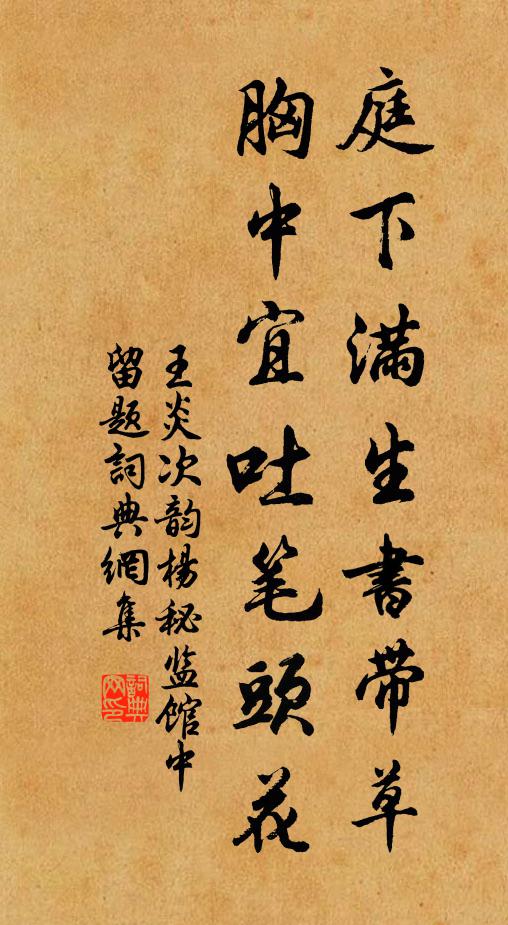 庭下满生書带草
胸中宜吐笔頭花
王炎次韵楊秘监馆中
留题詞典網集
詞典
网印